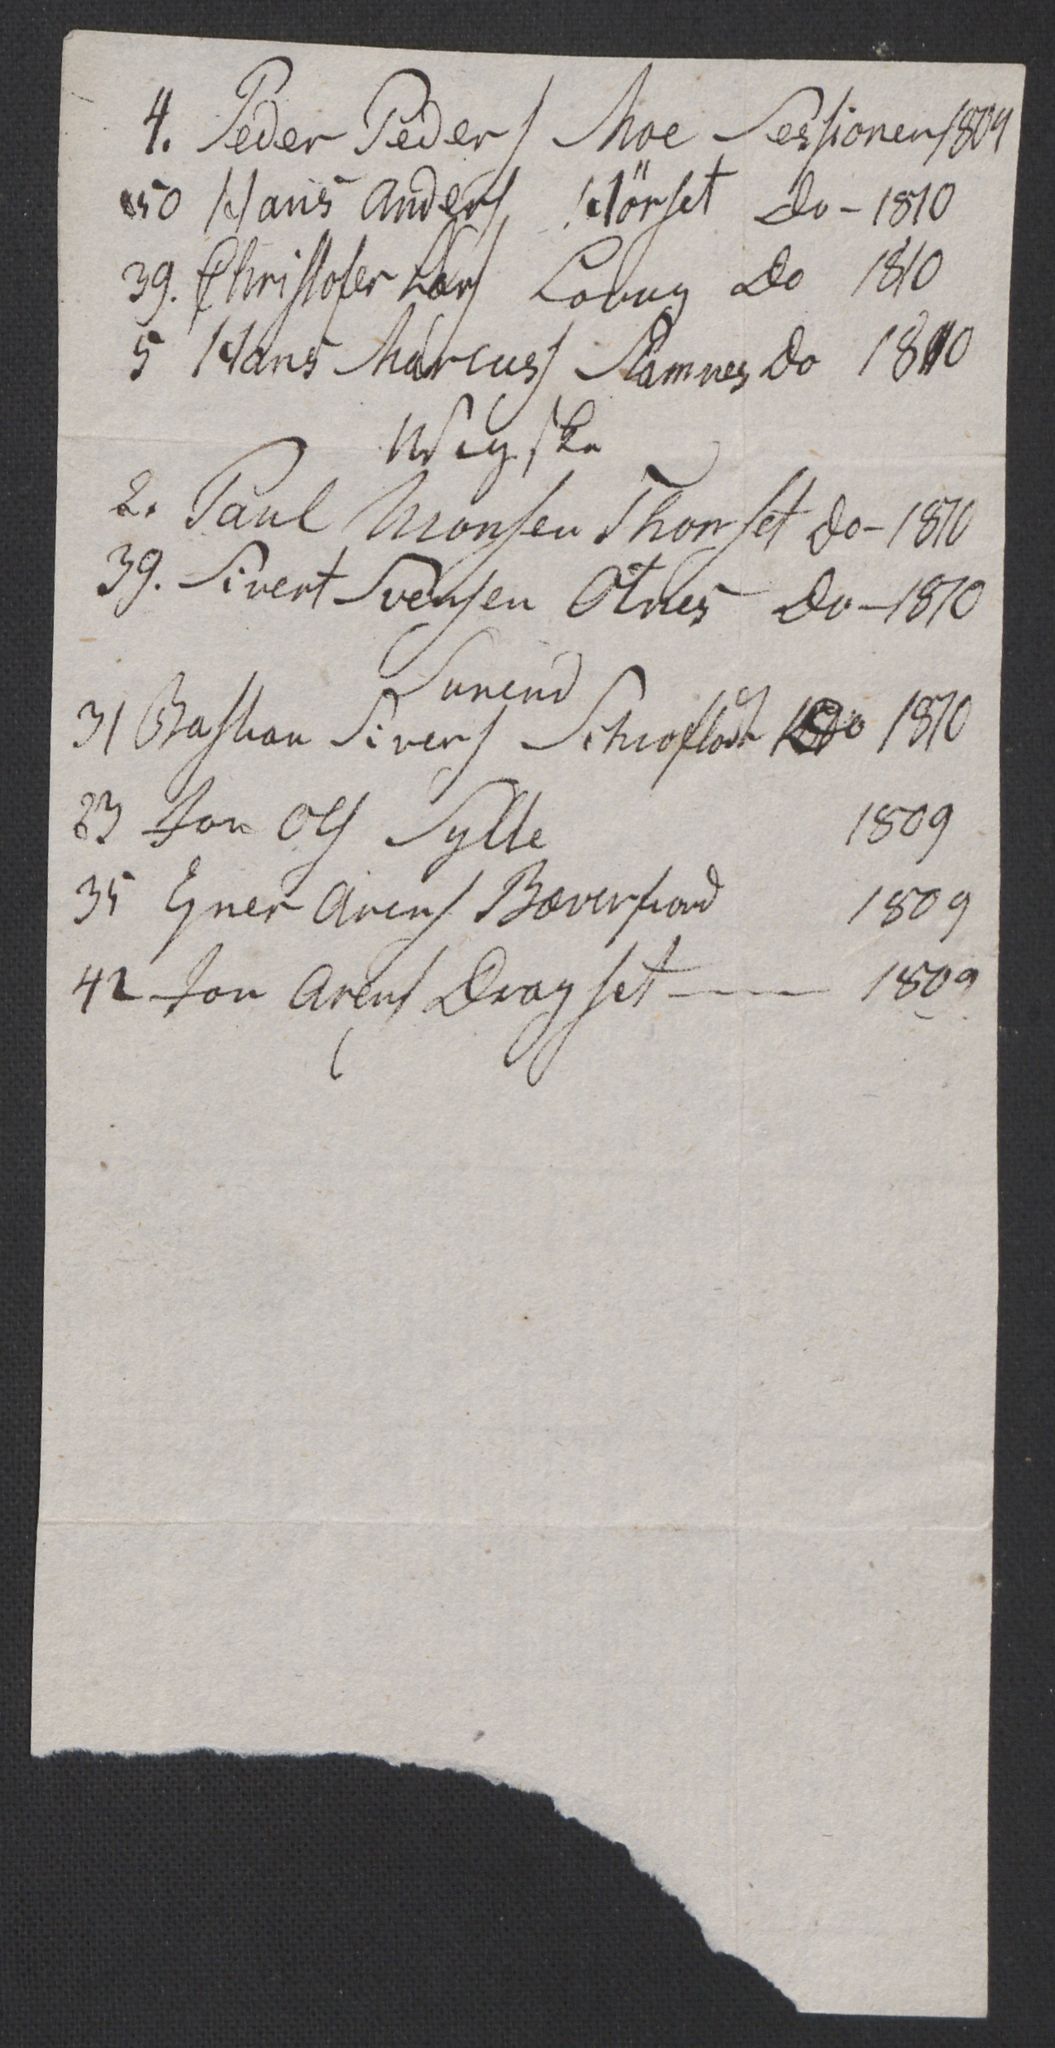 4. Peder Peders Moe Sessionen 1809
50 Hans Anders Hörset Do - 1810
39. Christofer Lars Do 1810
5 Hans Marcuss Stamnes Do 1810
2. Paul Monsen Thorset Do - 1810
39. Sivert Svensen Otnes Do - 1810
Surend
31 Bastian Sivers Do 1810
23 Jon Ols Sylte 1809
35 Eyner Arens Bæverfiord 1809
42 Jon Arens Dragset — 1809